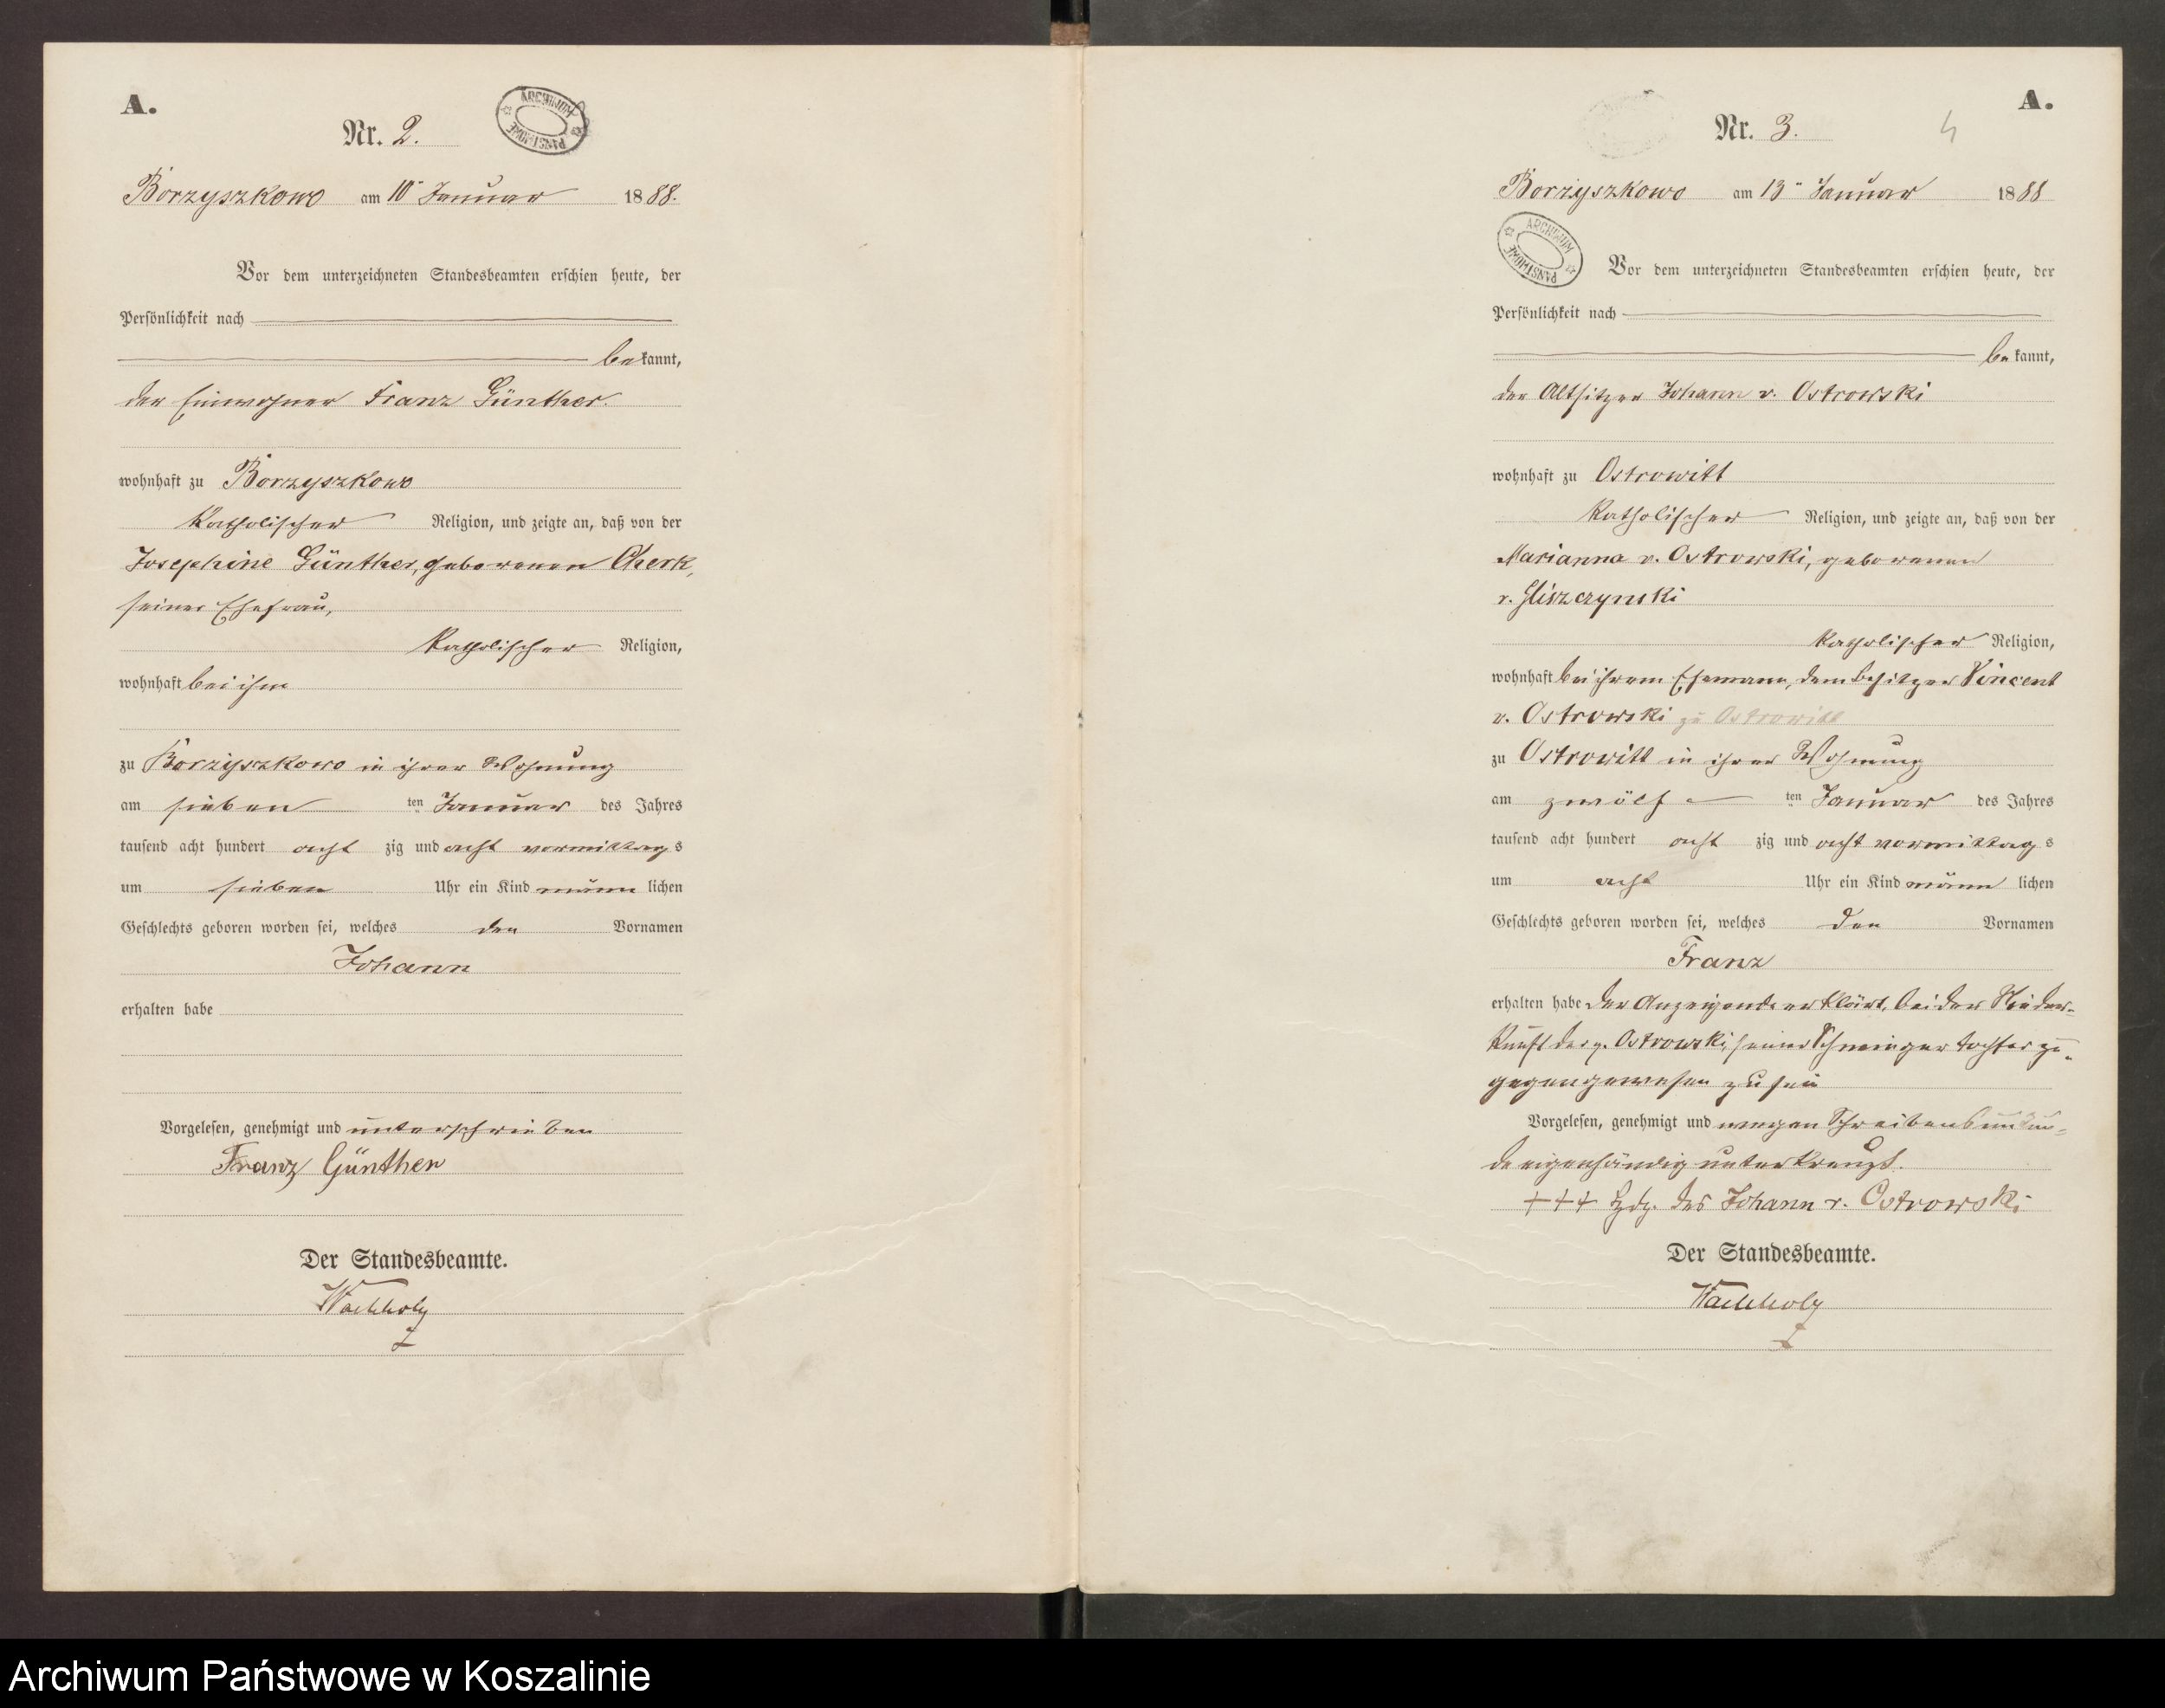 A.
Nr. 2.
ARCHIWUM PAŃSTWOWE
Borzyszkowo am 10ᵗ Januar 1888.
Vor dem unterzeichneten Standesbeamten erschien heute, der
Persönlichkeit nach
bekannt,
der Einwohner Franz Günther.
wohnhaft zu Borzyszkowo
katholischer Religion, und zeigte an, daß von der
Josephine Günther, geborenen Cherk,
seiner Ehefrau,
katholischer Religion,
wohnhaft bei ihm
zu Borzyszkowo in ihrer Wohnung
am sieben ten Januar des Jahres
tausend acht hundert acht zig und acht vormittags
um sieben Uhr ein Kind männlichen
Geschlechts geboren worden sei, welches den Vornamen
Johann
erhalten habe
Vorgelesen, genehmigt und unterschrieben
Franz Günther
Der Standesbeamte.
Wachholz
A.
Nr. 3.
4
Borzyszkowo am 13ᵗ Januar 1888
ARCHIWUM PAŃSTWOWE
Vor dem unterzeichneten Standesbeamten erschien heute, der
Persönlichkeit nach
bekannt,
der Altsitzer Johann v. Ostrowski
wohnhaft zu Ostrowitt
katholischer Religion, und zeigte an, daß von der
Marianna v. Ostrowski, geborenen
v. Gliszczynski
katholischer Religion,
wohnhaft bei ihrem Ehemann, dem Besitzer Vincent
v. Ostrowski zu Ostrowitt
zu Ostrowitt in ihrer Wohnung
am zwölf ten Januar des Jahres
tausend acht hundert acht zig und acht vormittags
um acht Uhr ein Kind männlichen
Geschlechts geboren worden sei, welches den Vornamen
Franz
erhalten habe Der Anzeigende erklärt, bei der Nieder-
kunft der v. Ostrowski, seiner Schwiegertochter zu-
gegen gewesen zu sein
Vorgelesen, genehmigt und wegen Schreibensunkun-
de eigenhändig unterkreuzt.
+++ Hdz. des Johann v. Ostrowski
Der Standesbeamte.
Wachholz
Archiwum Państwowe w Koszalinie